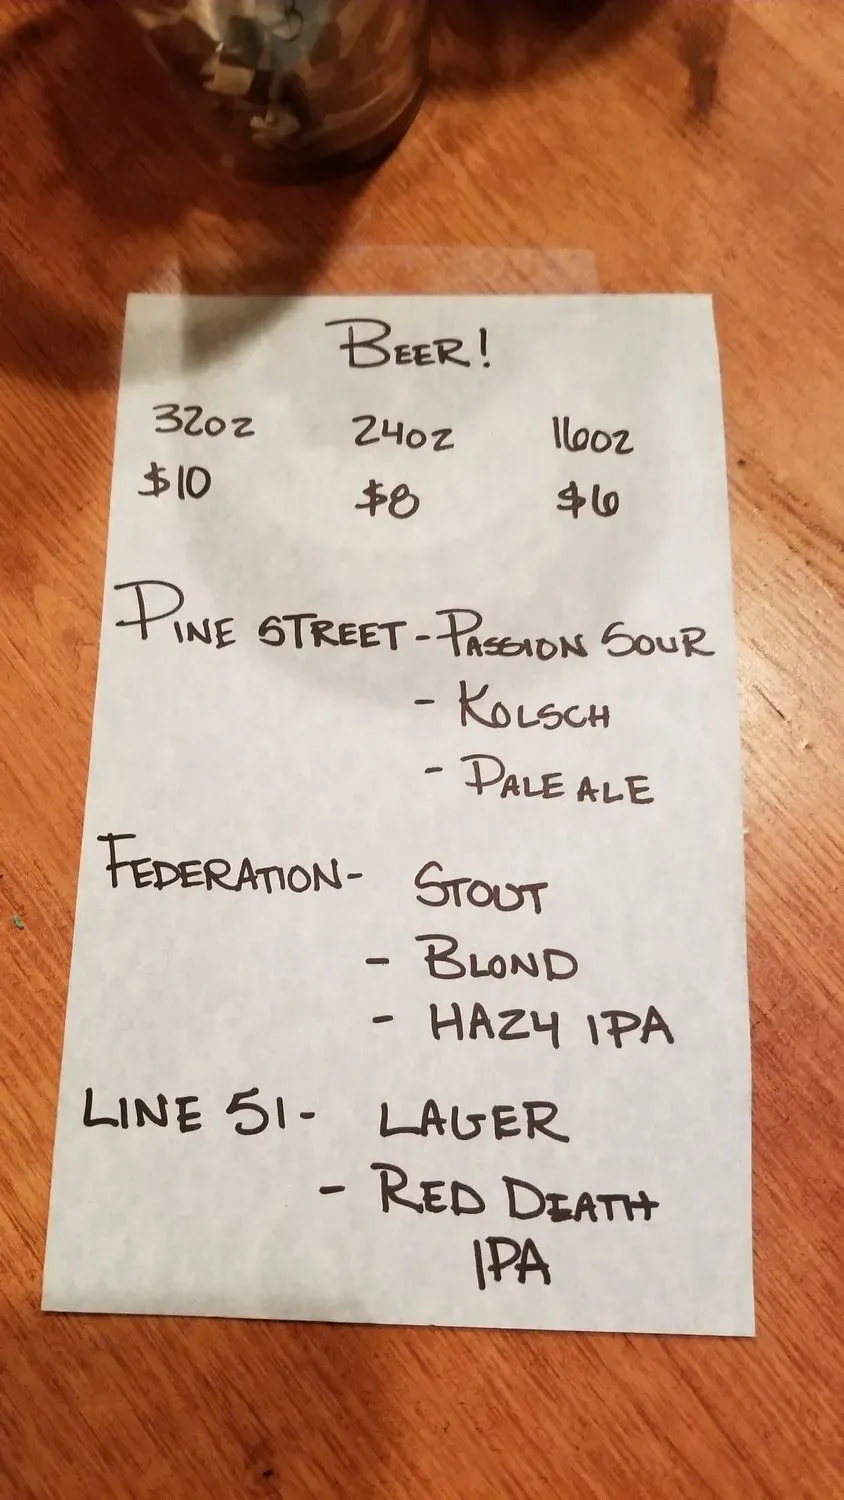 BEER!
32oz 24oz 16oz
$10 $8 $6
PINE STREET - PASSION SOUR
- KOLSCH
- PALE ALE
FEDERATION - STOUT
- BLOND
- HAZY IPA
LINE 51 - LAGER
- RED DEATH
IPA